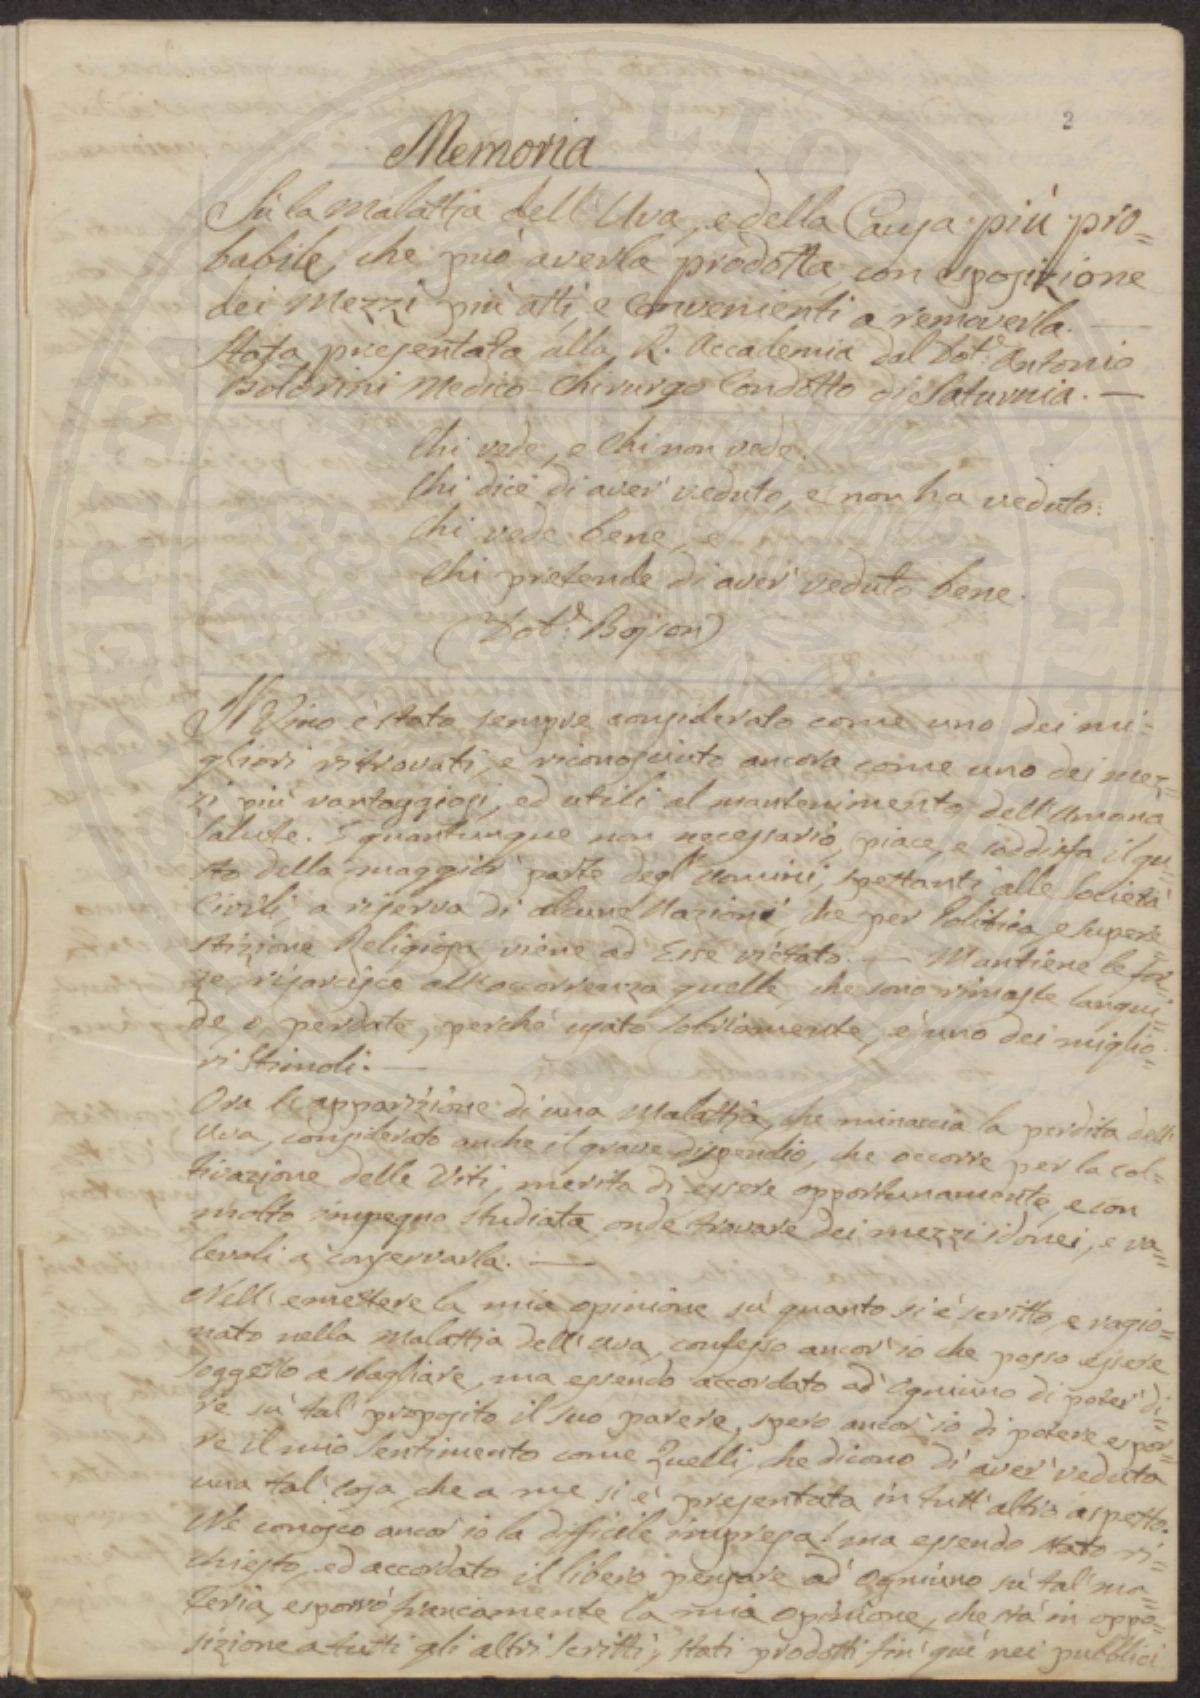 2
Memoria
Sù la Malattia dell'Uva, e della Causa più pro=
babile, che può averla prodotta, con esposizione
dei Mezzi più atti, e Convenienti a removerla. —
Stata presentata alla R. Accademia dal Dot.r Antonio
Boldrini Medico-Chirurgo Condotto di Saturnia. —
Chi vede, e Chi non vede.
Chi dice di aver' veduto, e non ha veduto:
Chi vede bene, e
Chi pretende di aver' veduto bene.
(Dot.r
Il Vino è stato sempre considerato come uno dei mi=
gliori ritrovati, e riconosciuto ancora come uno dei mez=
zi più vantaggiosi, ed utili al mantenimento dell'Umana
Salute. E quantunque non necessario, piace, e soddisfa il gu=
sto della maggior' parte degl'Uomini, spettanti alle Società
Civili, a riserva di alcune Nazioni, che per Politica, e super=
stizione Religiosa viene ad Esse vietato. — Mantiene le for=
ze, risarcisce all'occorrenza quelle, che sono rimaste langui=
de, o perdute, perché usato sobriamente, è uno dei miglio=
ri Stimoli. —
Ora l'apparizione di una Malattia, che minaccia la perdita dell'
Uva, considerato anche il grave dispendio, che occorre per la col=
tivazione delle Viti, merita di essere opportunamente, e con
molto impegno studiata, onde trovare dei mezzi idonei, e va=
levoli a conservarla. —
Nell'emettere la mia opinione sù quanto si è scritto, e ragio=
nato nella Malattia dell'Uva, confesso ancor'io che posso essere
soggetto a sbagliare, ma essendo accordato ad' Ogniuno di poter' di=
re sù tal' proposito il suo parere, spero ancor'io di potere espor=
re il mio Sentimento come Quelli, che dicono di aver' veduta
una tal' Cosa, che a me si è presentata in tutt'altro aspetto.
Nè conosco ancor'io la difficile impresa! ma essendo stato ri=
chiesto, ed accordato il libero pensare ad' Ogniuno sù tal' ma=
teria, esporrò francamente la mia Opinione, che stà in oppo=
sizione a tutti gli altri Scritti, stati prodotti fin' quì nei pubblici